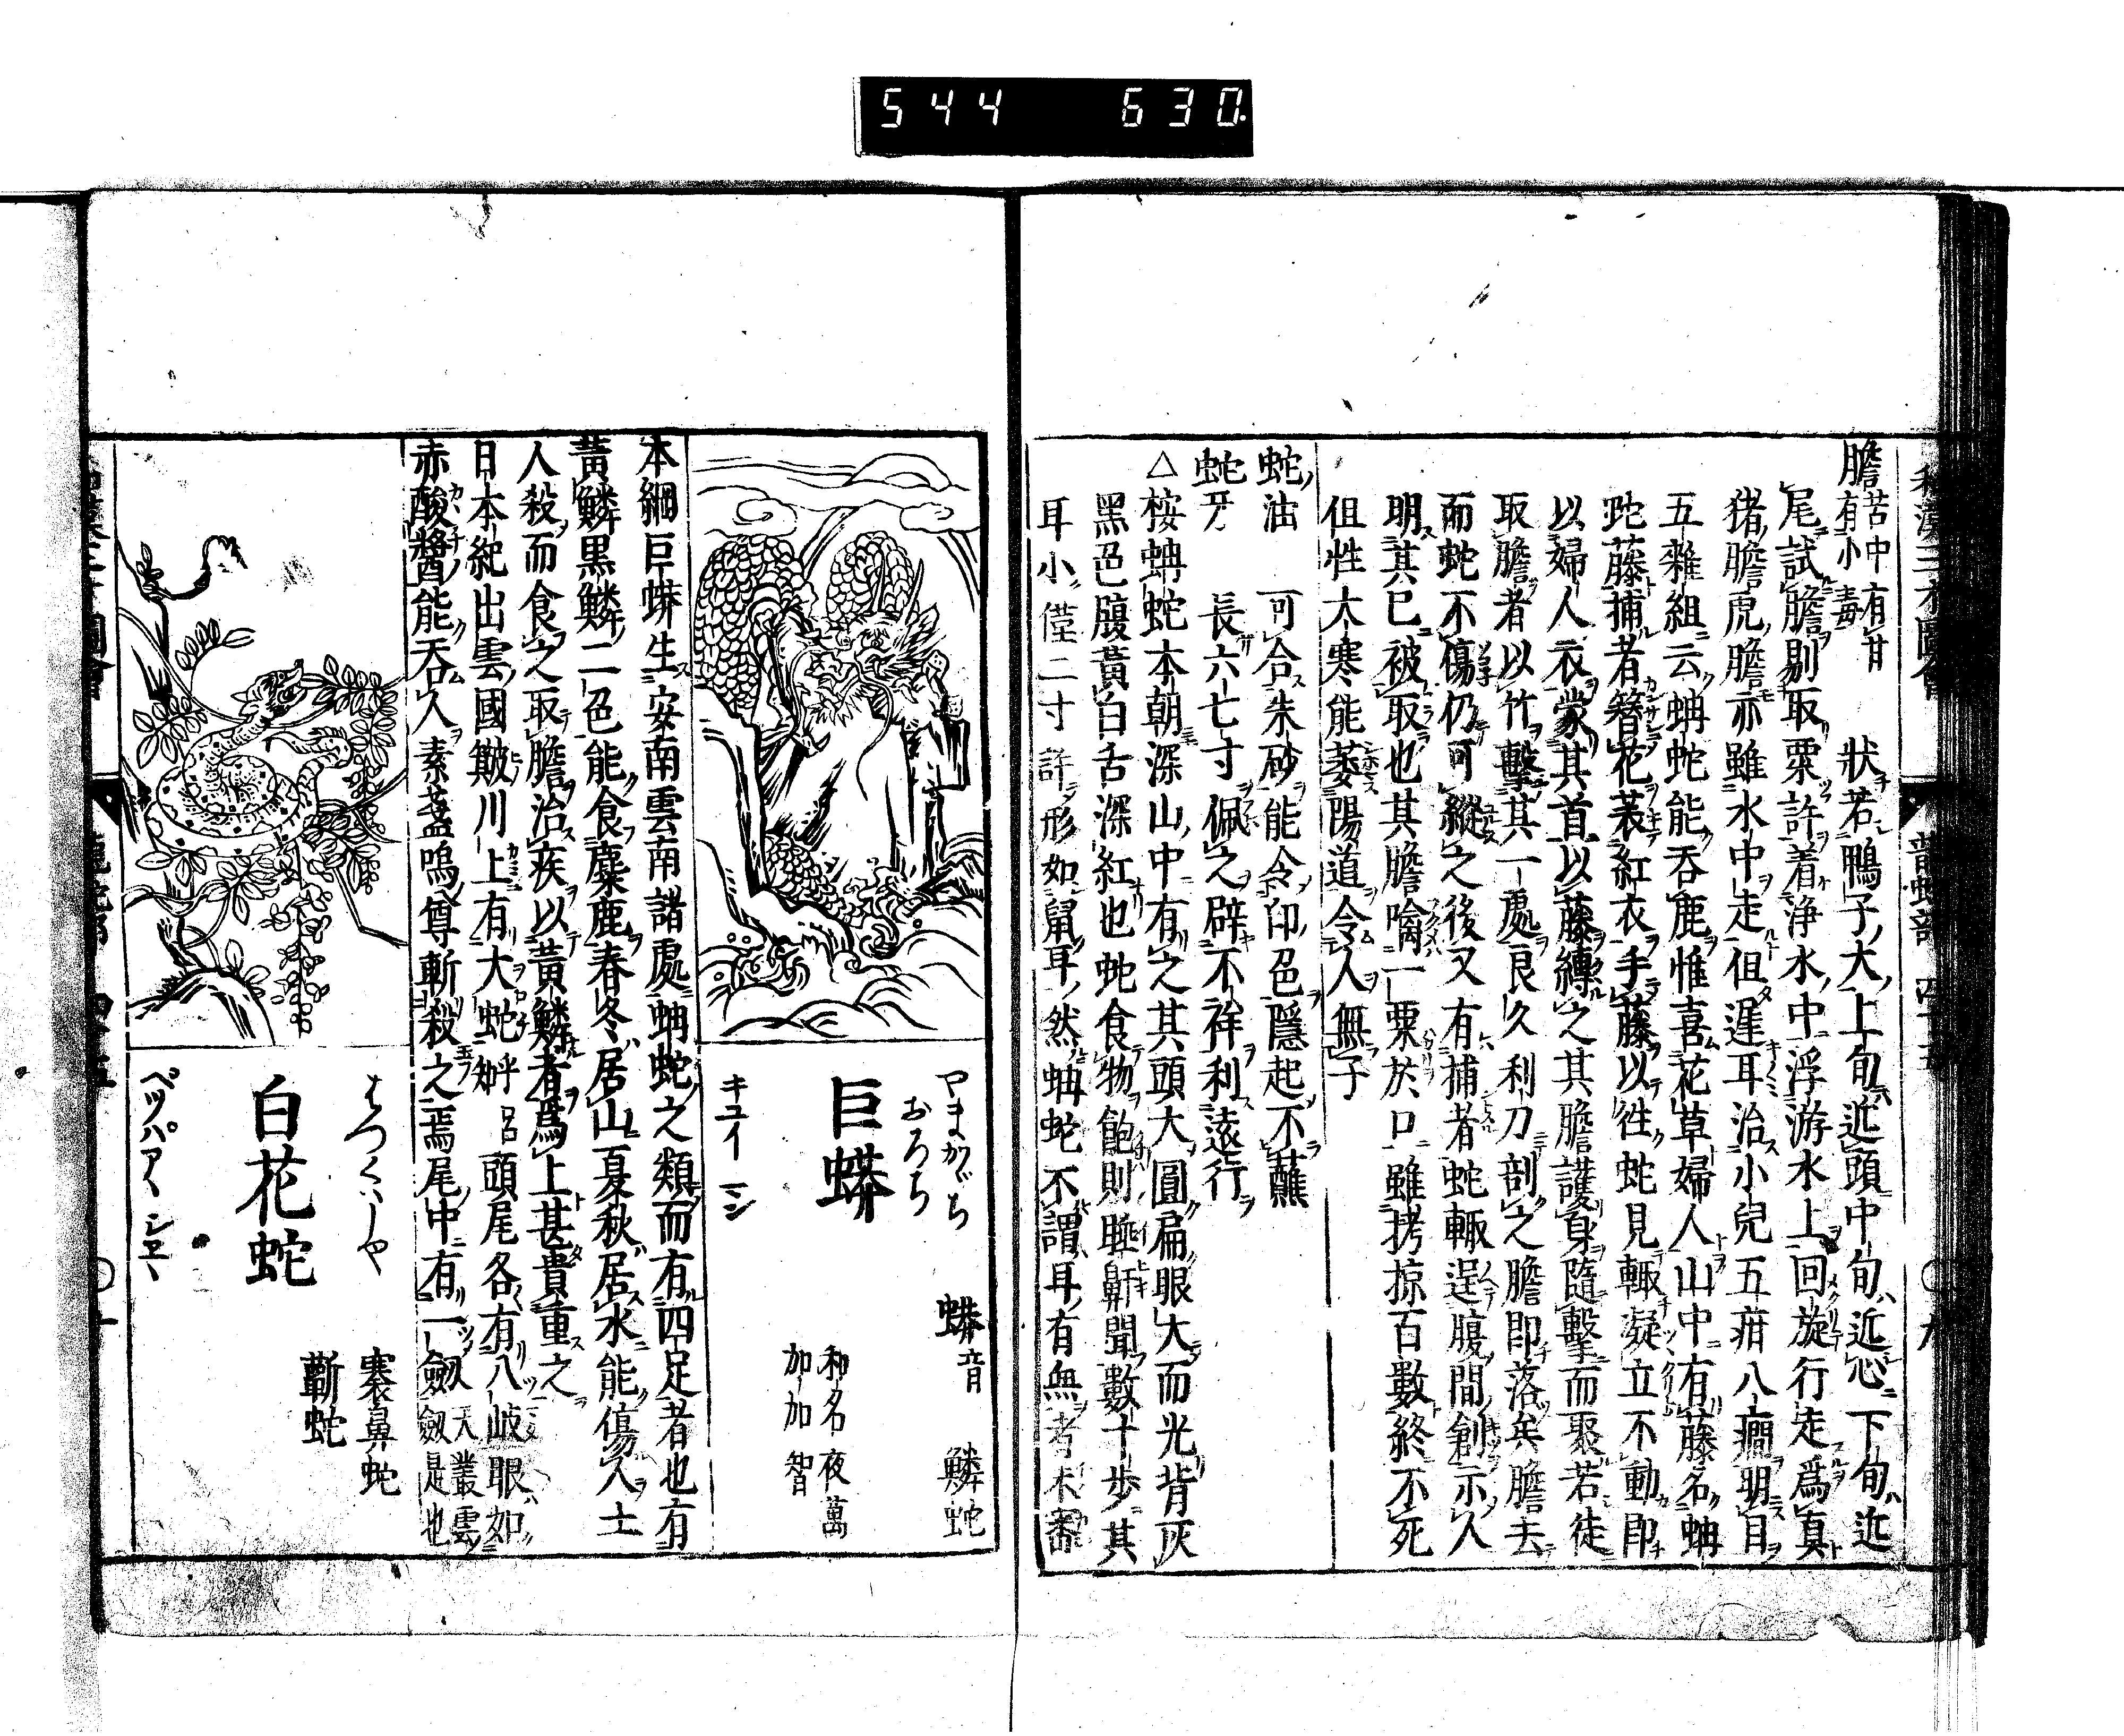 544 630.
和漢三才圖會 龍蛇部 四十五 〇九
膽 苦中有甘
有小毒
狀若鴨子大上旬近頭中旬近心下旬近
尾試膽剔取粟許着淨水中浮游水上回旋行走爲真
猪膽虎膽亦雖水中走但遲耳治小兒五疳八癇明目
五雜組云蚺蛇能吞鹿惟喜花草婦人山中有藤名蚺
蛇藤捕者簪花衣紅衣手藤以徃蛇見輙凝立不動即
以婦人衣蒙其首以藤縛之其膽護身隨擊而聚若徒
取膽者以竹擊其一處良久利刀剖之膽即落矣膽去
而蛇不傷仍可縱之後又有捕者蛇輙逞腹間創示人
明其已被取也其膽噙一粟於口雖拷掠百數終不死
但性大寒能萎陽道令人無子
蛇油 可合朱砂能令印色隱起不蘸
蛇牙 長六七寸佩之辟不祥利遠行
△桉蚺蛇本朝深山中有之其頭大圓扁眼大而光背灰
黑色腹黃白舌深紅也蛇食物飽則睡鼾聞數十步其
耳小僅二寸許形如鼠耳然蚺蛇不謂耳有無考未審
やまかがち
おろち
巨蟒
キユイ ニシ
蟒音
鱗蛇
和名夜萬
加加智
本綱巨蟒生安南雲南諸處蚺蛇之類而有四足者也有
黃鱗黒鱗二色能食麋鹿春冬居山夏秋居水能傷人土
人殺而食之取膽治疾以黃鱗者爲上甚貴重之
日本紀出雲國簸川上有大蛇 頭尾各有八岐眼如
赤酸醬能吞人素盞嗚尊斬殺之焉尾中有一劔 天叢雲
劔是也
はつくはしや
白花蛇
ペツパアヽシヱヽ
褰鼻蛇
蘄蛇